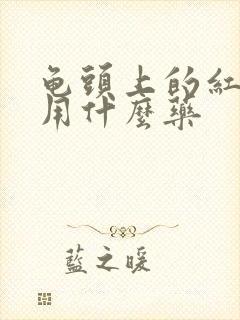 龟頭上的紅
用什麼藥
藍之暖